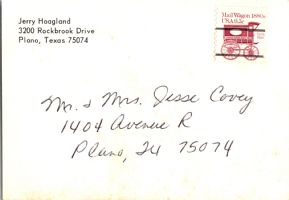 Jerry Hoagland
3200 Rockbrook Drive
Plano, Texas 75074
Mail Wagon 1880s
USA 9.3c
Mr. & Mrs. Jesse Covey
1404 Avenue R
Plano, Tx 75074